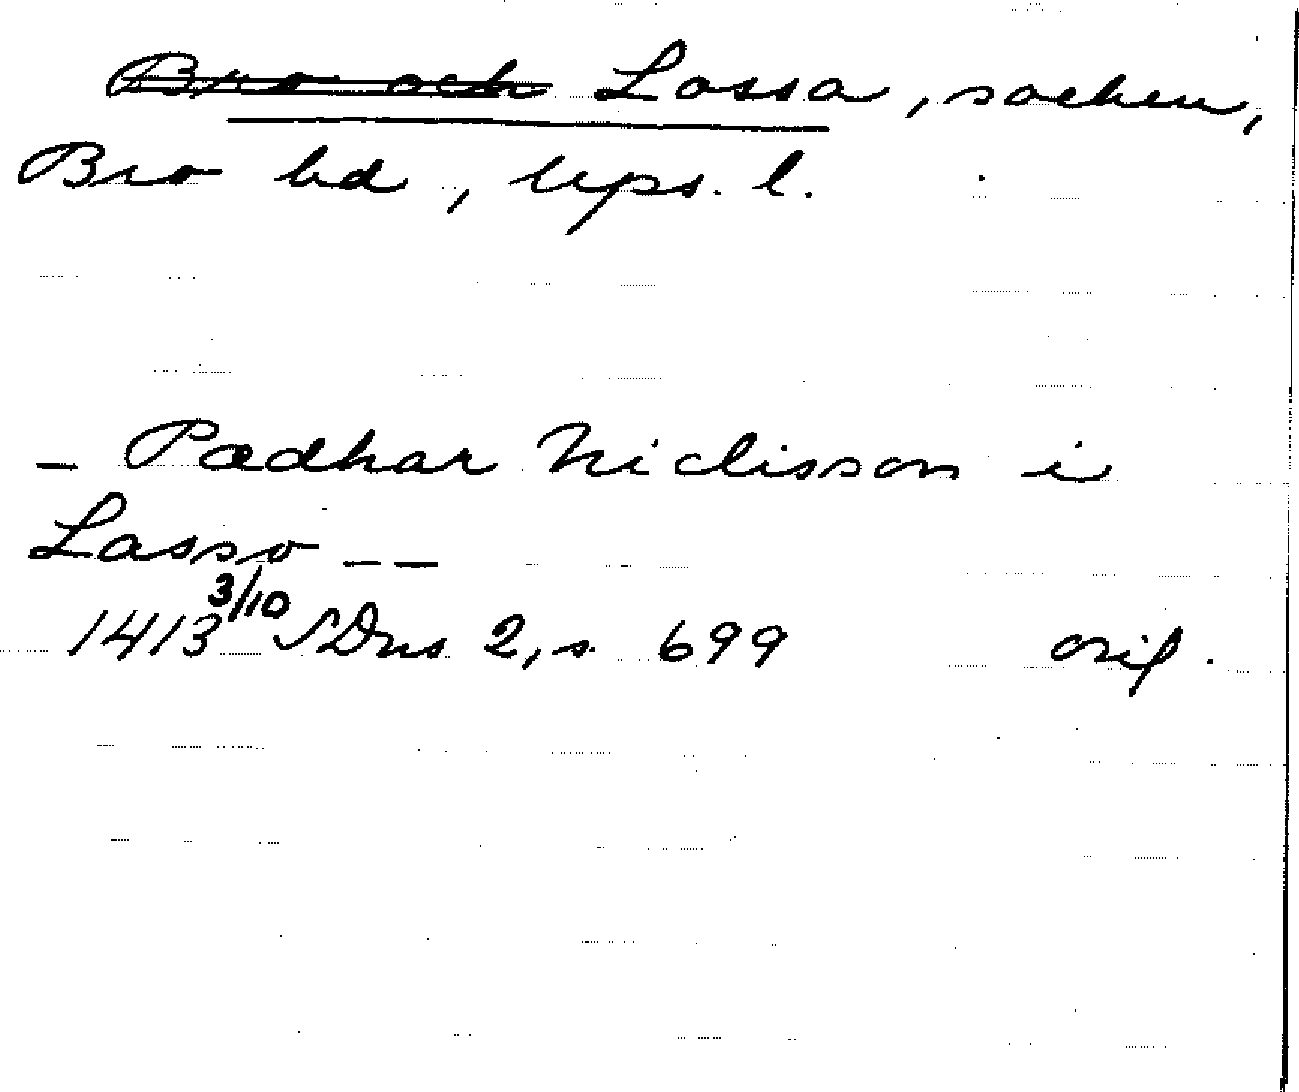 Bro och Lossa, socken,
Bro hd, Ups. l.
- Pædhar Niclisson i
Lasso --
1413 3/10 SDns 2, s. 699 orig.